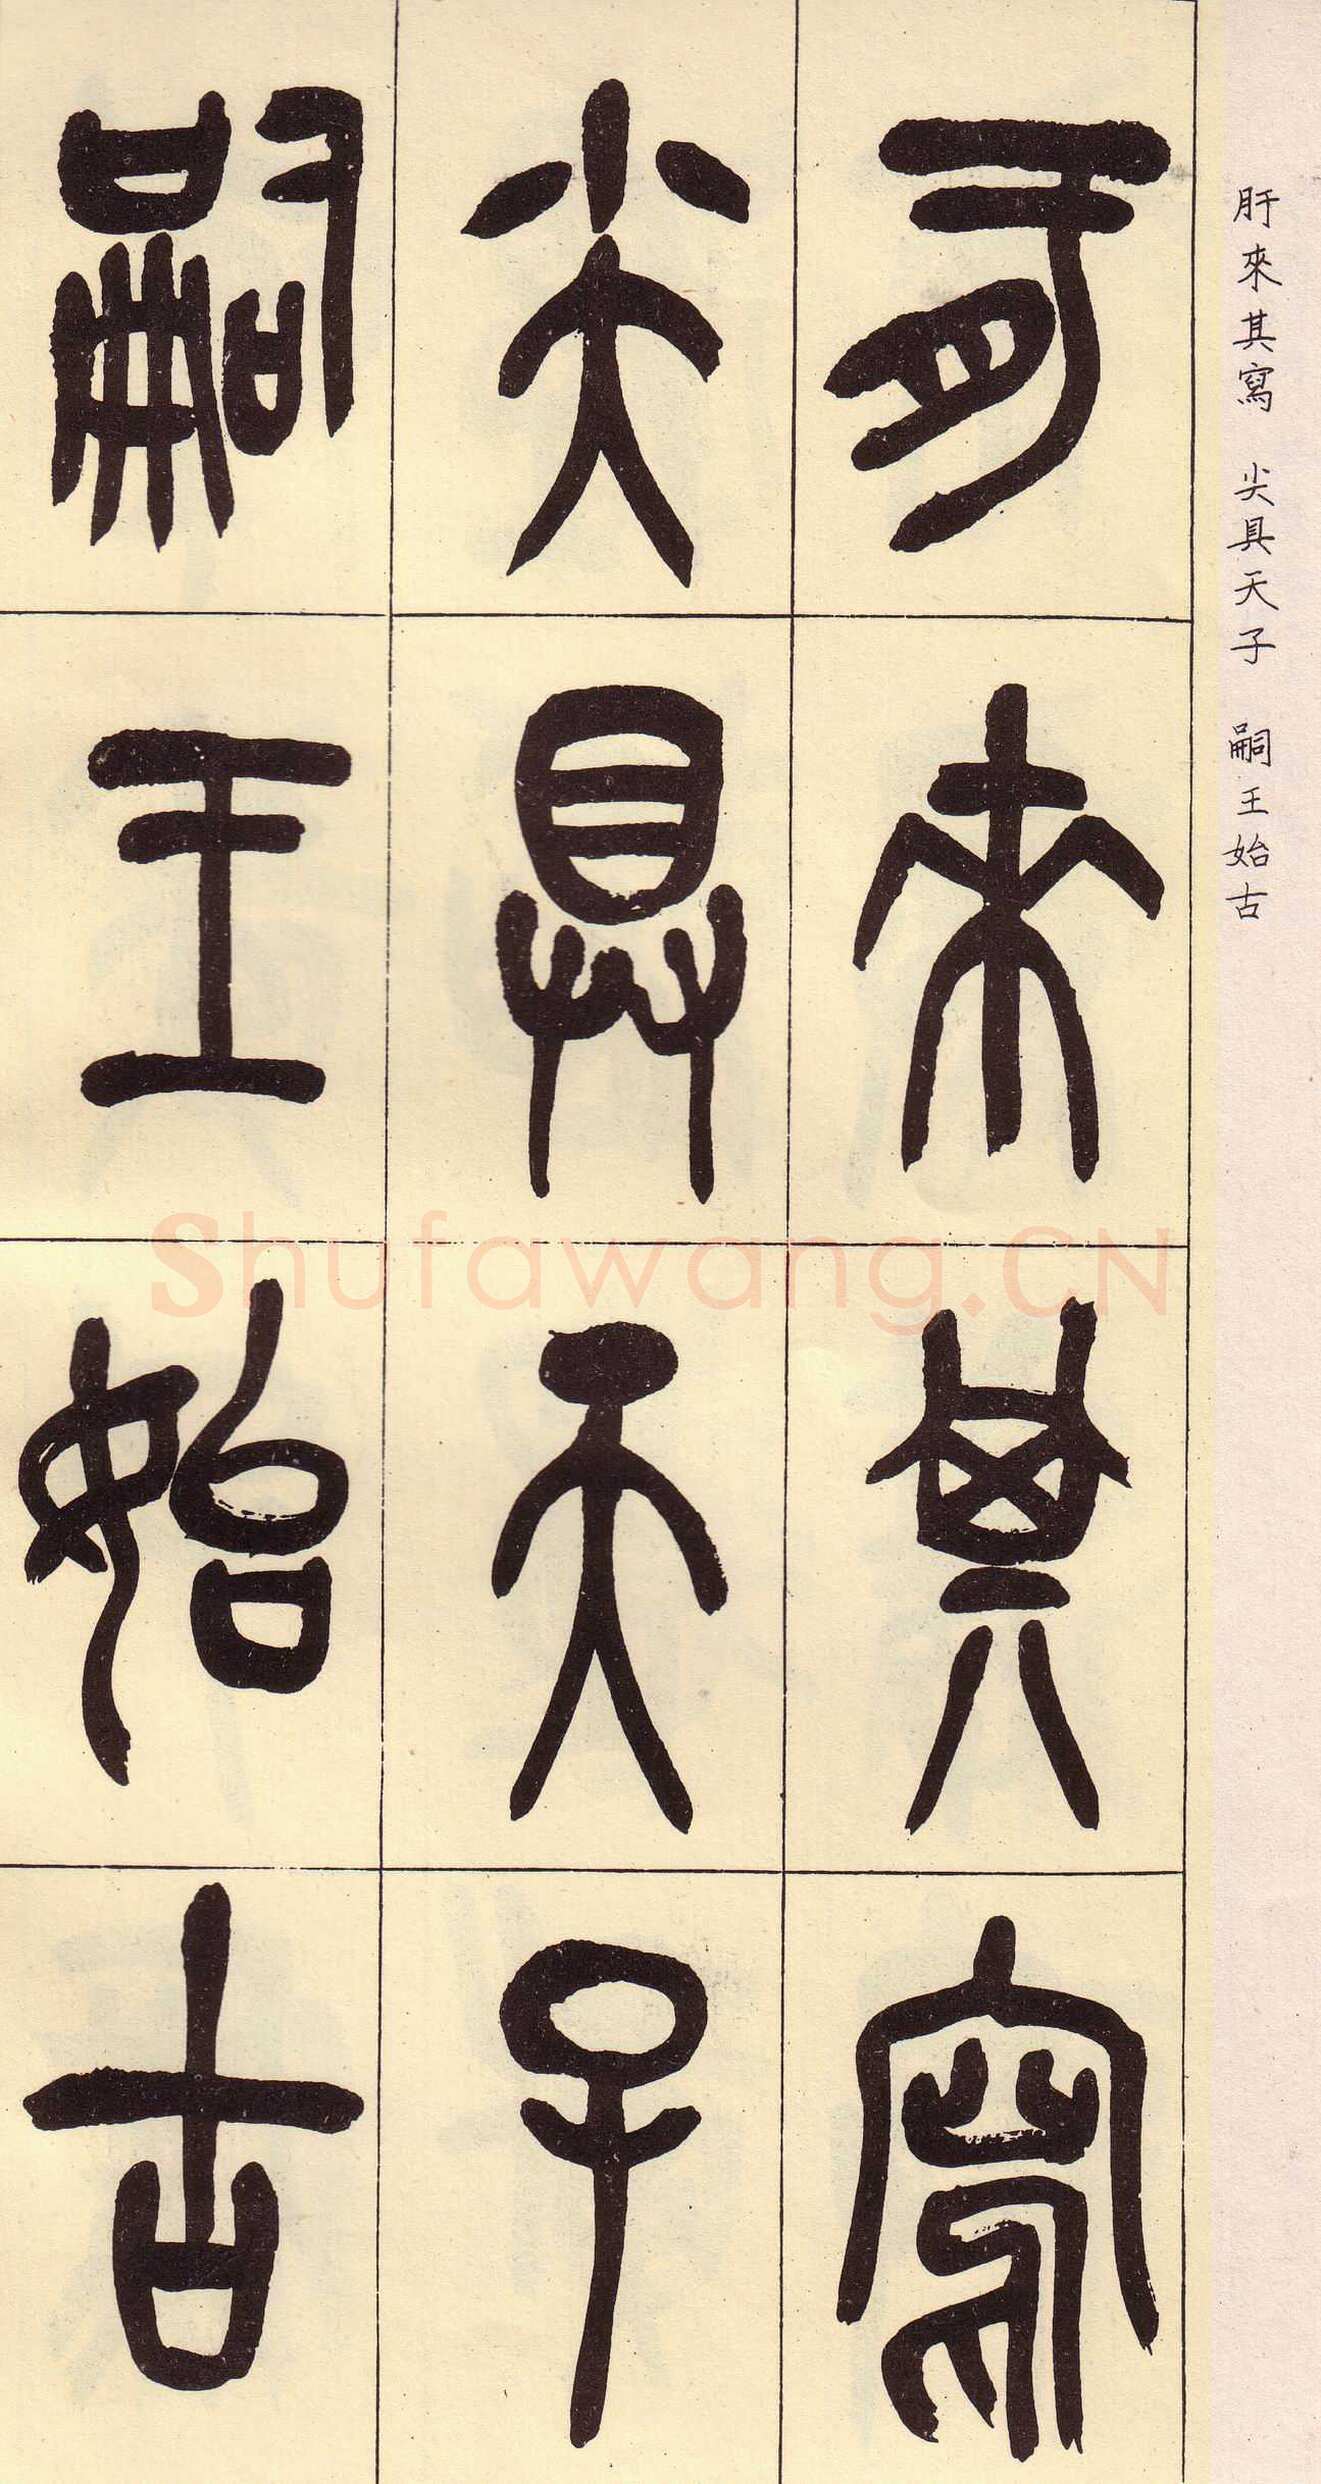 盱來其寫 尖具天子 嗣王始古
盱來其寫
尖具天子
嗣王始古
Shufawang.CN